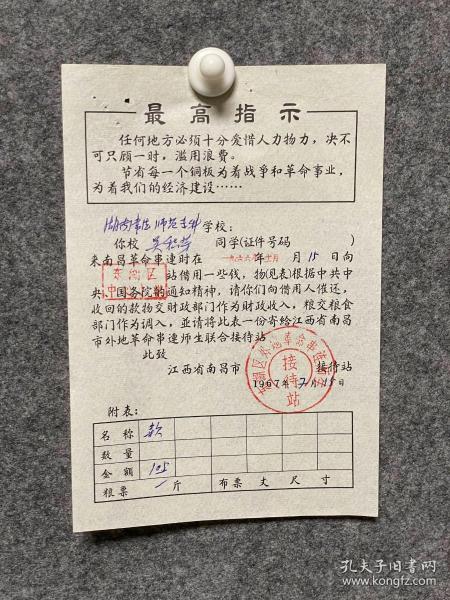 最高指示
任何地方必须十分爱惜人力物力，决不
可只顾一时，滥用浪费。
节省每一个铜板为着战争和革命事业，
为着我们的经济建设……
学校：
你校 同学(证件号码 )
来南昌革命串连时在一九六六年十月 15日向
东湖区 站借用一些钱，物(见表)根据中共中
央、国务院的通知精神，请你们向借用人催还，
收回的款物交财政部门作为财政收入，粮交粮食
部门作为调入，並请将此表一份寄给江西省南昌
市外地革命串连师生联合接待站
此致
江西省南昌市 接待站
1967年7月15日
接待站
附表：
名称 款
数量
金额
粮票 斤 布票 丈 尺 寸
孔夫子旧书网
www.kongfz.com